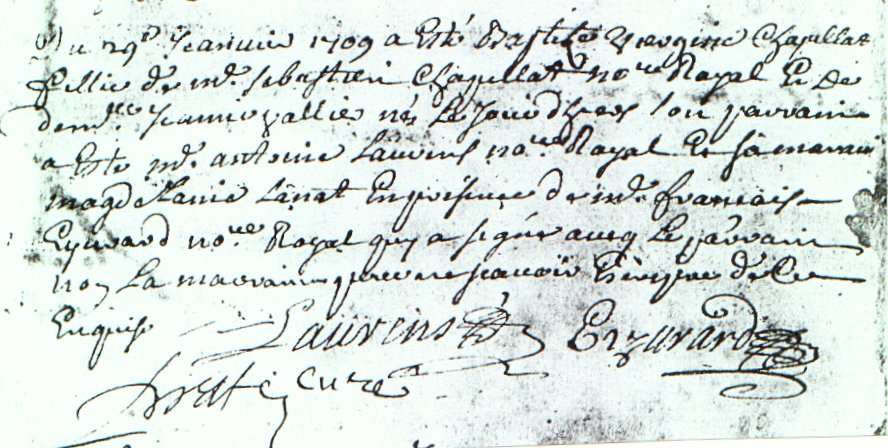 Du 29e Jeanvie 1709 a Esté Baptisée Viergine Chapullat
fillie de me. Sebastien Chapullat nore. Royal Et de
demlle. Jeanne vallie née Le Jour d'hyer son parrain
a Esté me. antoine Laurens nore. Royal Et sa marraine
magdelaine Lanat En presence de me. francois
Eyzurard nore. Royal quy a signé avecq Le parrain
non La marraine pour ne scavoir Escripre de Ce
Enquise
Laurens Eyzurard
curé